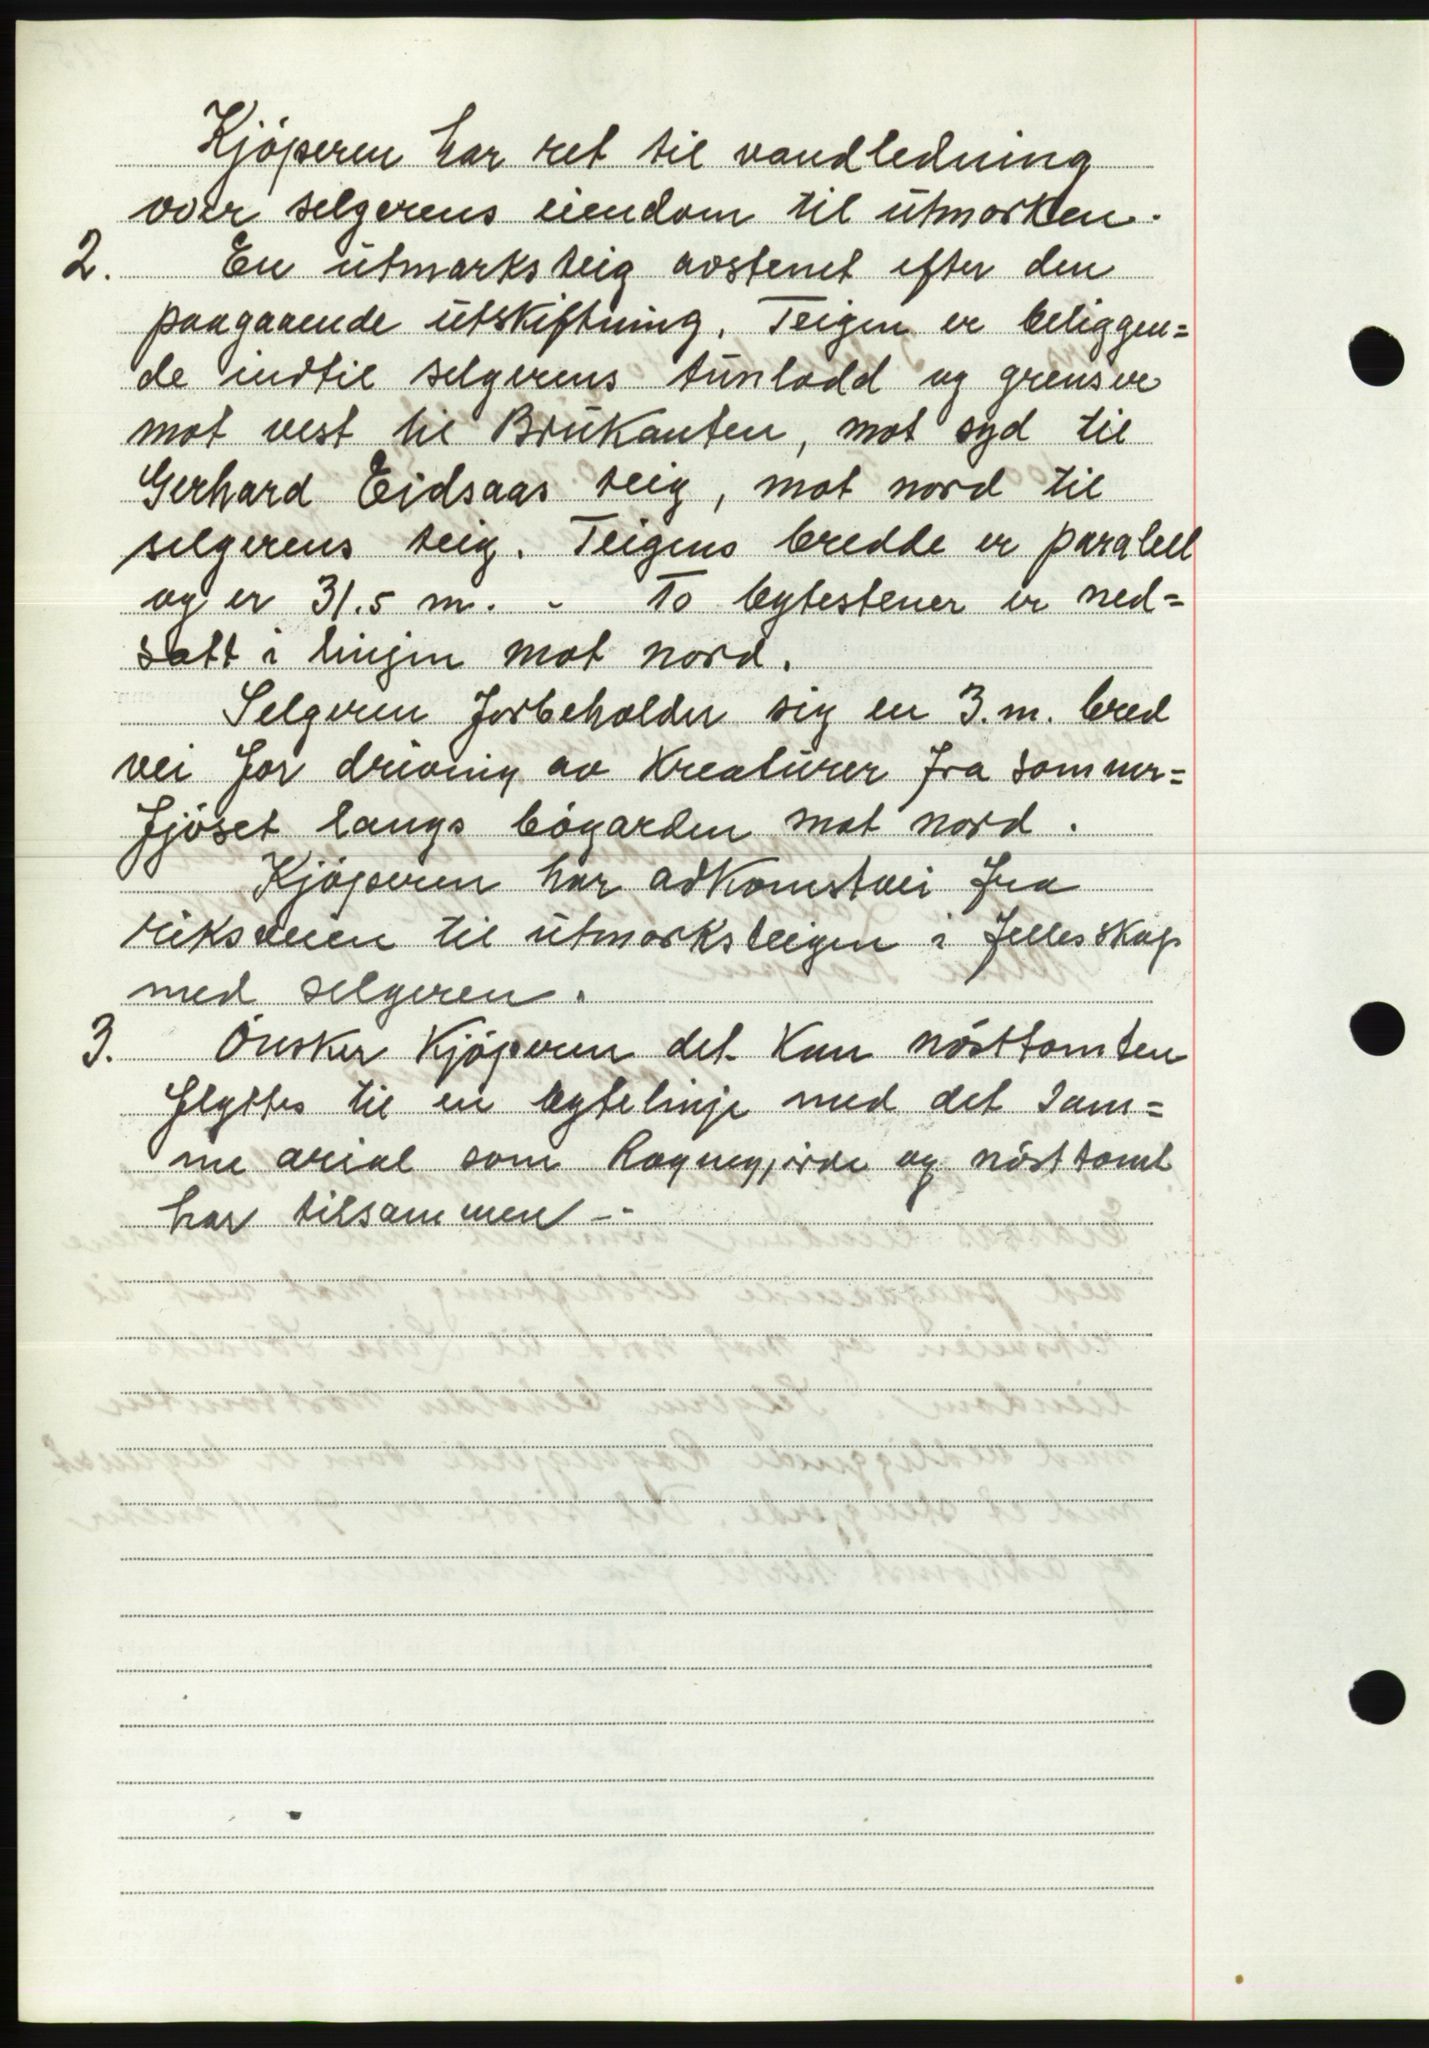 Kjöperen har ret til vandledning
over selgerens eiendom til utmarken.
2. En utmarksteig avstenet efter den
paagaaende utskiftning. Teigen er beliggen=
de indtil selgerens tunlodd og grenser
mot vest til Brukanten, mot syd til
Gerhard Eidsaas teig, mot nord til
selgerens teig. Teigens bredde er paralell
og er 31.5 m. - To bytestener er ned=
satt i linjen mot nord.
Selgeren forbeholder sig en 3.m. bred
vei for driving av kreaturer fra sommer=
fjöset langs bögarden mot nord.
Kjöperen har adkomstvei fra
riksveien til utmarksteigen i fellesskap
med selgeren.
3. Önsker kjöperen det kan nösttomten
flyttes til en bytelinje med det sam=
me arial som Rognegjirde og nösttomt
har tilsammen -